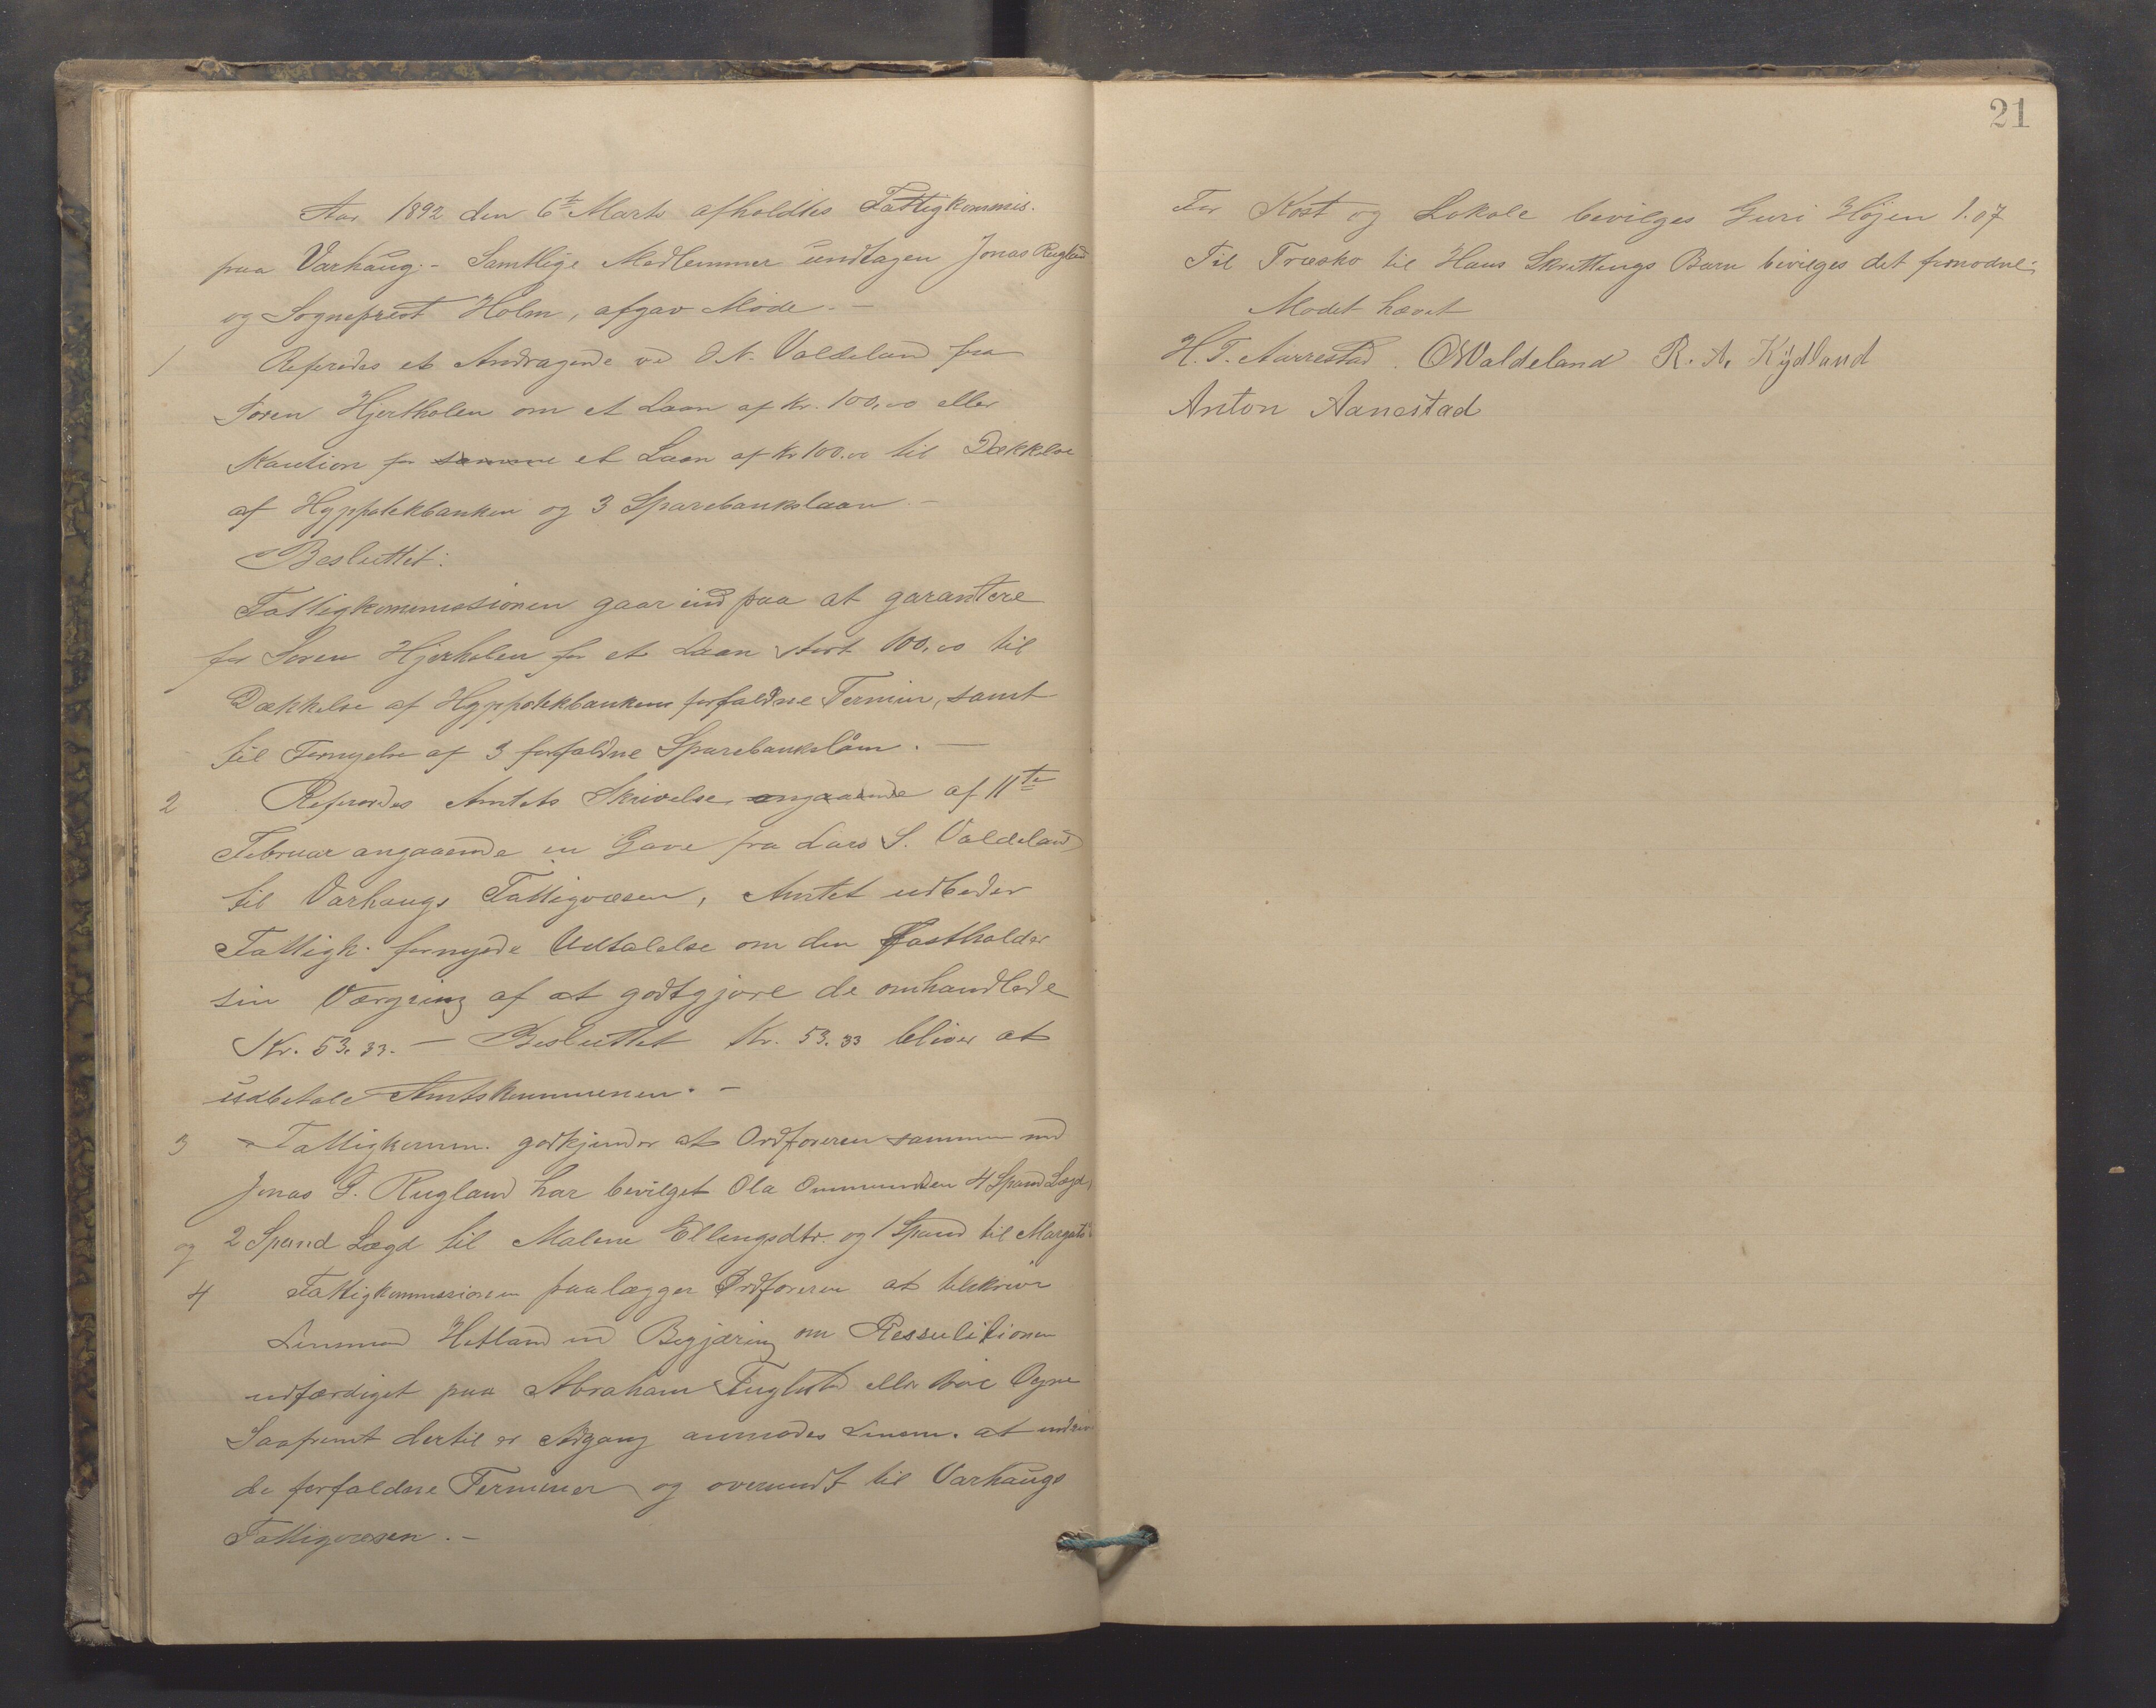 Aar 1892 den 6te Marts afholdtes Fattigkommis.
paa Varhaug. - Samtlige Medlemmer undtagen Jonas Rugland
og Sogneprest Holm, afgav Møde. -
1 Refereredes et Andragende ved O. N. Valdeland fra
Søren Hjertholen om et Laan af Kr. 100,00 eller
Kaution for samme et Laan af Kr 100.00 til Dækkelse
af Hyppotekbanken og 3 Sparebankslaan -
Besluttet:
Fattigkommissionen gaar ind paa at garantere
for Søren Hjerholen for et Laan stort 100,00 til
Dækkelse af Hyppotekbankens forfaldne Termin, samt
til Fornyelse af 3 forfaldne Sparebankslån. -
2 Refereredes Amtets Skrivelse angaaende af 11te
Februar angaaende en Gave fra Lars S. Valdeland
til Varhaugs Fattigvæsen, Amtet udbeder
Fattigk. fornyede Udtalelse om den Fastholder
sin Vægring af at godtgjøre de omhandlede
Kr. 53.33. - Besluttet Kr. 53.33 bliver at
udbetale Amtskommunen. -
3 Fattigkomm. godkjender at Ordføreren sammen med
Jonas G. Rugland har bevilget Ola Ommundsen 4 Spand Lægd
og 2 Spand Lægd til Malene Ellingsdtr. og 1 Spand til
4 Fattigkommissionen paalægger Ordføreren at tilskrive
Linsmand Hetland med Begjæring om Ressulitionen
udfærdiget paa Abraham Fuglestad eller Ogne
Saafremt dertil er Adgang anmodes Linsm. at inddrive
de forfaldne Terminer og oversendt til Varhaugs
Fattigvæsen. -
21
For Kost og Lokale bevilges Guri Højen 1.07
Til Træsko til Hans Skrettings Barn bevilges det fornødne.
Mødet hævet
H. T. Aarrestad. O N Valdeland R. A. Kydland
Anton Aanestad